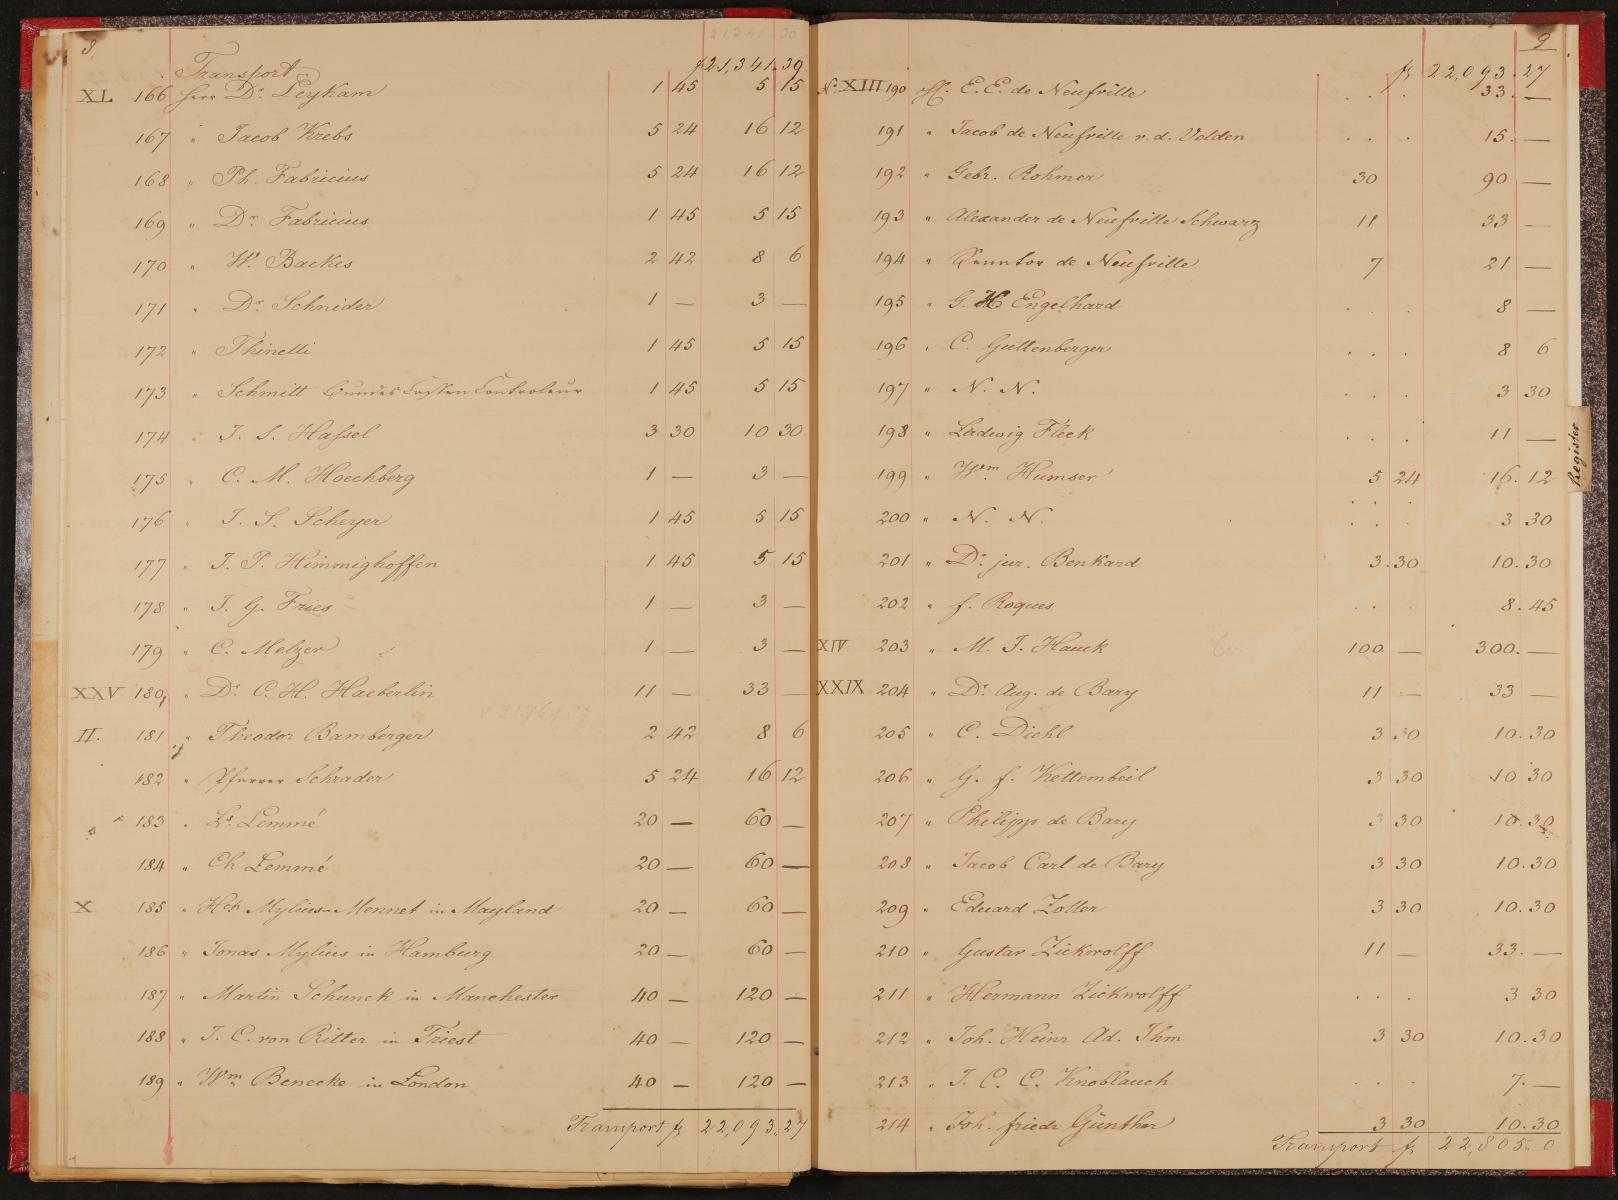 8.
Transport f 21,341.39
XL 166 Herr Dr. Leykam 1 45 5 15
167 " Jacob Krebs 5 24 16 12
168 " Ph. Fabricius 5 24 16 12
169 " Dr. Fabricius 1 45 5 15
170 " W. Backes 2 42 8 6
171 " Dr. Schnider 1 — 3 —
172 " Thinelli 1 45 5 15
173 " Schmitt Bundes Cassen Controleur 1 45 5 15
174 " J. S. Hassel 3 30 10 30
175 " C. M. Hoechberg 1 — 3 —
176 " J. S. Scheyer 1 45 5 15
177 " J. P. Himmighoffen 1 45 5 15
178 " J. G. Fries 1 — 3 —
179 " C. Melzer 1 — 3 —
XXV 180 " Dr. C. H. Haeberlin 11 — 33 —
II. 181 " Theodor Bamberger 2 42 8 6
182 " Pfarrer Schrader 5 24 16 12
183 " Lemmé 20 — 60 —
184 " Ch Lemmé 20 — 60 —
X 185 " Hch Mylius-Mennet in Mayland 20 — 60 —
186 " Jonas Mylius in Hamburg 20 — 60 —
187 " Martin Schunck in Manchester 40 — 120 —
188 " J. C. von Ritter in Triest 40 — 120 —
189 " Wm Benecke in London 40 — 120 —
Transport f 22,093.27
9
f 22,093.27
No XIII 190 H. E. E. de Neufville . . . 33. —
191 " Jacob de Neufville v. d. Velden . . . 15. —
192 " Gebr. Rohmer 30 90 —
193 " Alexander de Neufville Schwarz 11 33 —
194 " Senator de Neufville 7 21 —
195 " G. H Engelhard . . . 8 —
196 " C. Guttenberger . . . 8 6
197 " N. N. . . . 3 30
198 " Ludwig Fleck . . . 11 —
199 " Wm. Humser 5 24 16. 12
200 " N. N. . . . 3 30
201 " Dr. jur. Benkard 3.30 10.30
202 " f. Roques . . 8.45
XIV 203 " M. J. Hauck 100 — 300. —
XXIX 204 " Dr. Aug. de Bary 11 — 33 —
205 " C. Diehl 3 30 10.30
206 " G. f. Kettembeil 3 30 10 30
207 " Philipp de Bary 3 30 10.30
208 " Jacob Carl de Bary 3 30 10.30
209 " Eduard Zoller 3 30 10.30
210 " Gustav Zickwolff 11 — 33. —
211 " Hermann Zickwolff . . . 3 30
212 " Joh. Heinr Ad. Ihm 3 30 10.30
213 " J. C. C. Knoblauch . . . 7. —
214 " Joh. friedr Günther 3 30 10.30
Transport f 22,805. 0
Register